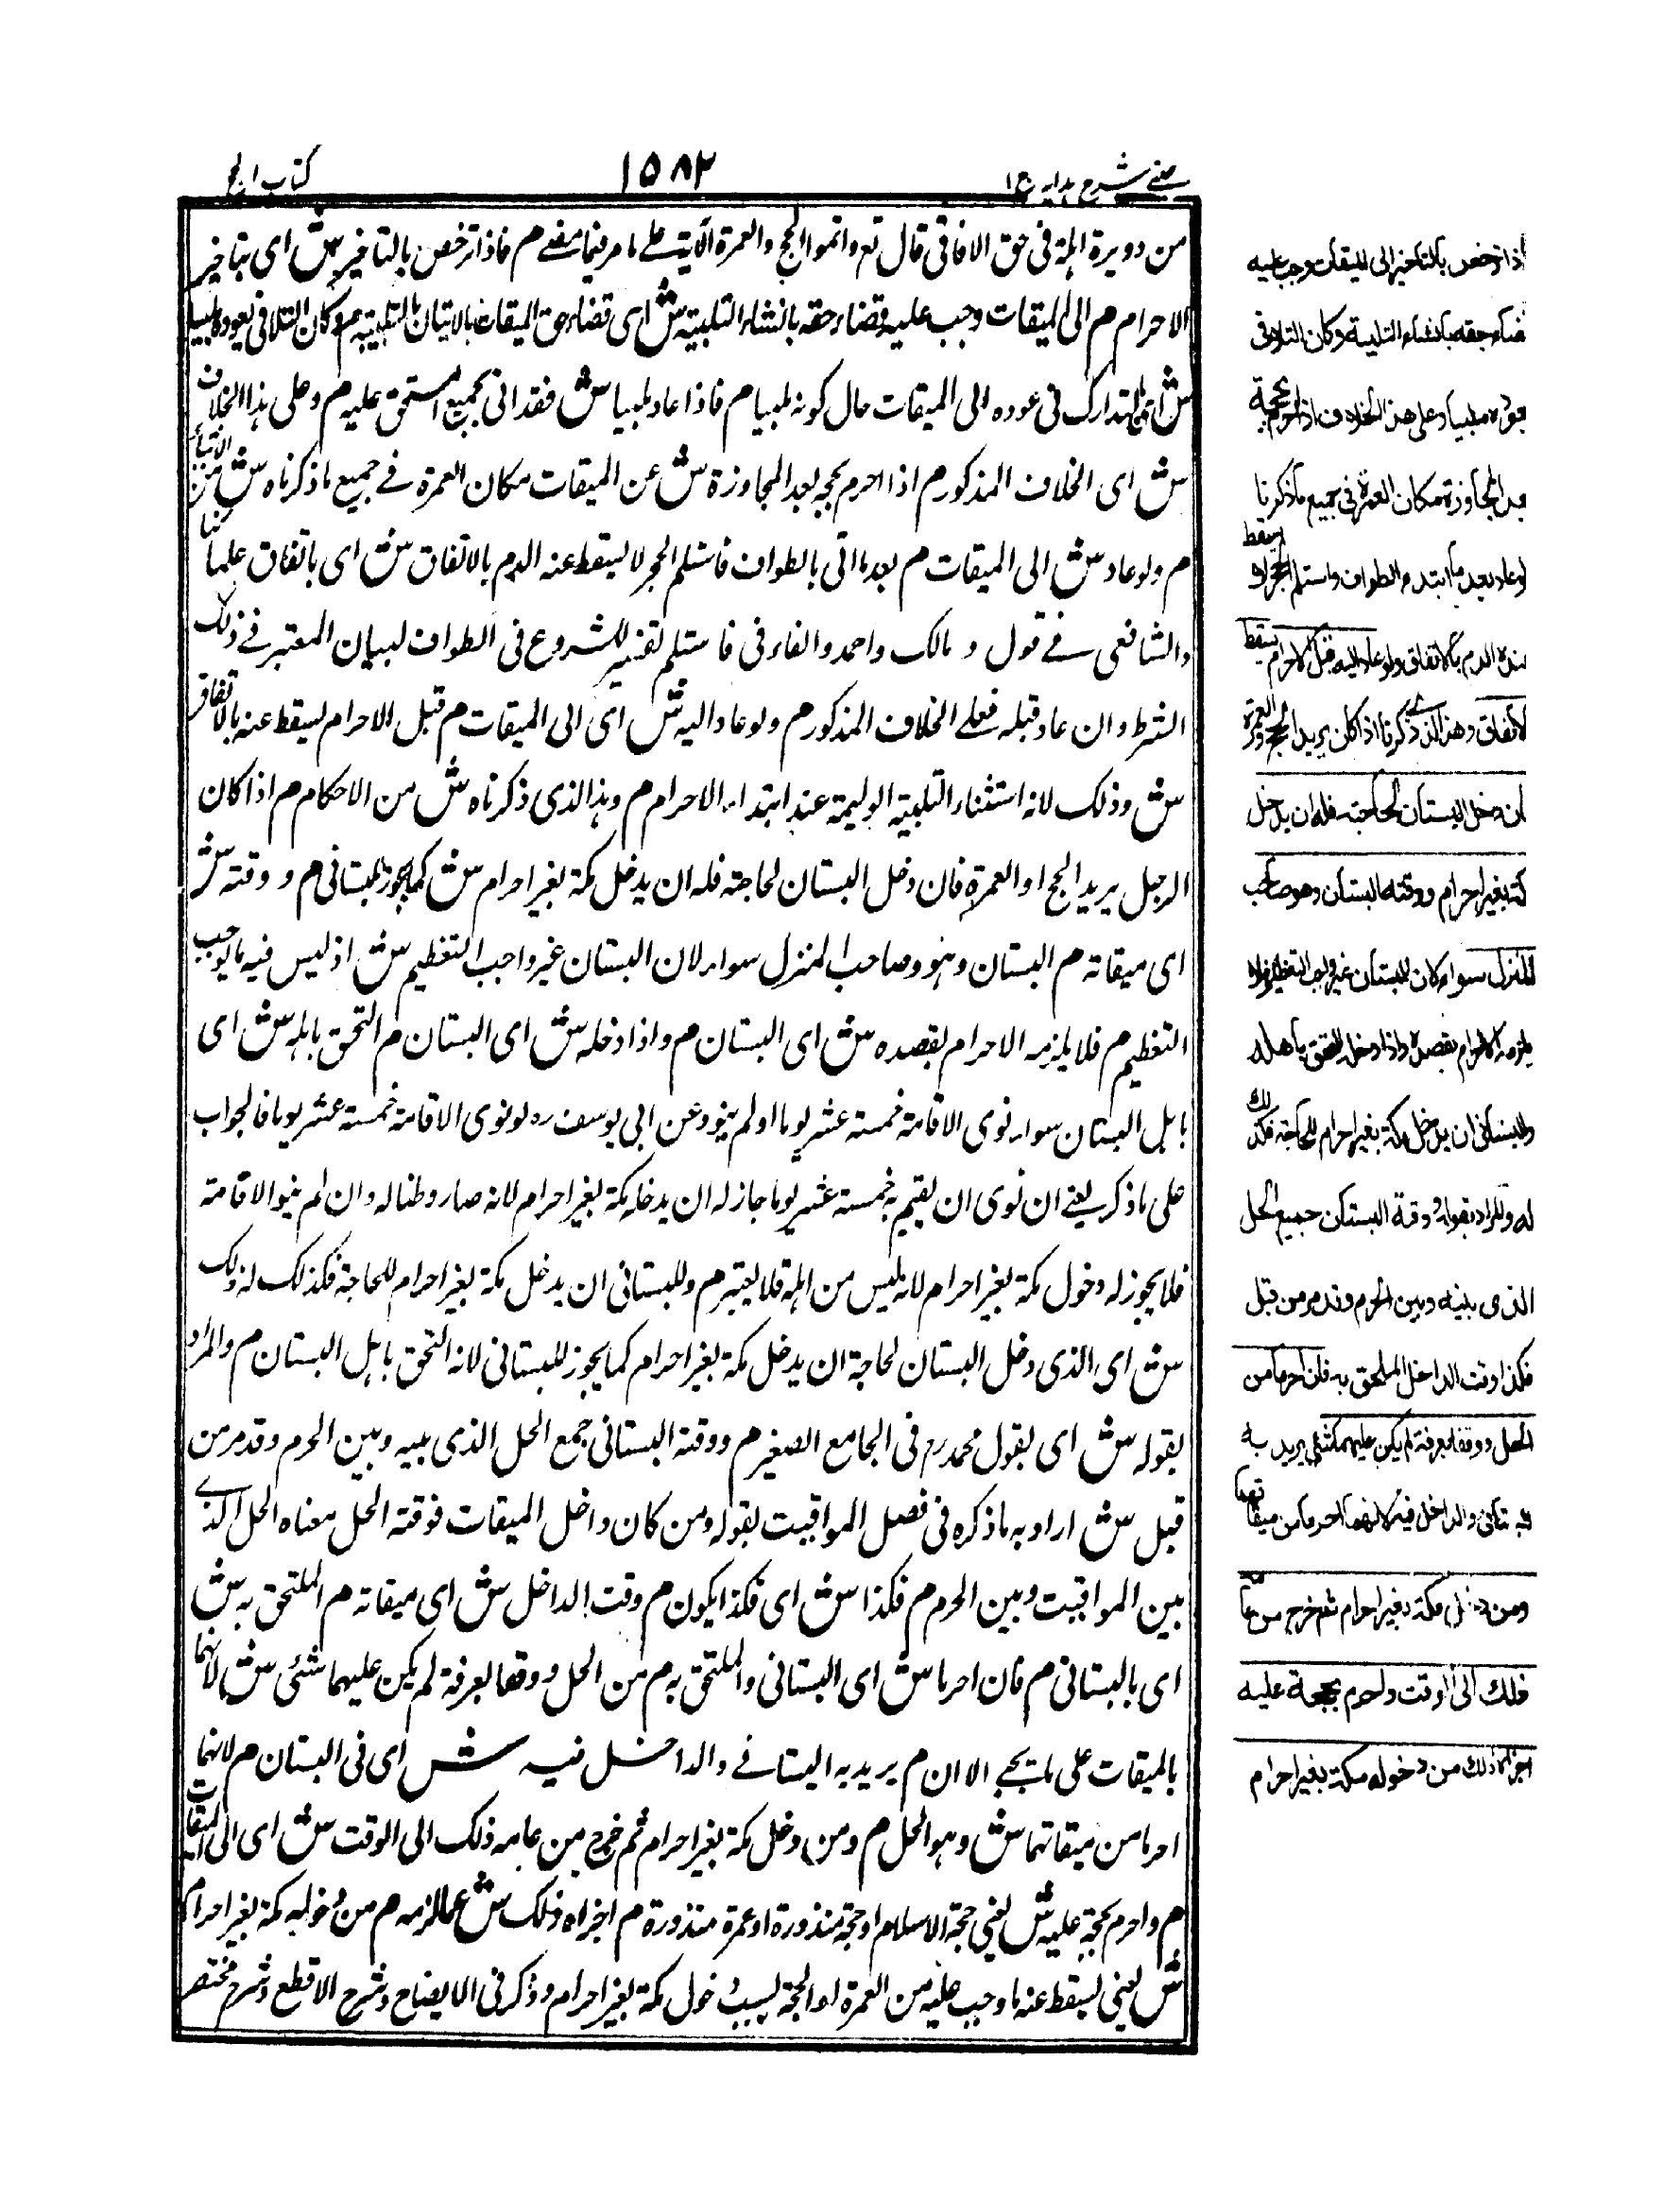 عينى شرح هدايه ج ١
١٥٨٢
كتاب الحج
من دويرة اهله فى حق الافاقى قال تع واتموا الحج والعمرة الآية على ما مر فيما مضى م فاذا ترخص بالتاخير ش اى بتاخير
الاحرام م الى الميقات وجب عليه قضاء حقه بانشاء التلبية ش اى قضاء حق الميقات بالاتيان بالتلبية م وكان التلافى بعوده ملبيا
ش اى التدارك فى عوده الى الميقات حال كونه ملبيا م فاذا عاد ملبيا ش فقد اتى بجميع المستحق عليه م وعلى هذا الخلاف
ش اى الخلاف المذكور م اذا احرم بحجة بعد المجاوزة ش عن الميقات مكان العمرة فى جميع ما ذكرناه ش من
م ولو عاد ش الى الميقات م بعد ما اتى بالطواف فاستلم الحجر لا يسقط عنه الدم بالاتفاق ش اى باتفاق علمائنا
والشافعى فى قول و مالك واحمد والفاء فى فاستلم تفسير للشروع فى الطواف لبيان المعتبر فى ذلك
الشرط وان عاد قبله فعلى الخلاف المذكور م ولو عاد اليه ش اى الى الميقات م قبل الاحرام يسقط عنه بالاتفاق
ش وذلك لانه استثناء التلبية عند ابتداء الاحرام م وهذا الذى ذكرناه ش من الاحكام م اذا كان
الرجل يريد الحج او العمرة فان دخل البستان لحاجته فله ان يدخل مكة بغير احرام ش كما يجوز للبستانى م و وقته ش
اى ميقاته م البستان وهو وصاحب المنزل سواء لان البستان غير واجب التعظيم ش اذ ليس فيه ما يوجب
التعظيم م فلا يلزمه الاحرام بقصده ش اى البستان م واذا دخله ش اى البستان م التحق باهله ش اى
باهل البستان سواء نوى الاقامة خمسة عشر يوما او لم ينو وعن ابى يوسف رہ لو نوى الاقامة خمسة عشر يوما فالجواب
على ما ذكر يعنى ان نوى ان يقيم به خمسة عشر يوما جاز له ان يدخل مكة بغير احرام لانه صار وطنا له وان لم ينو الاقامة
فلا يجوز له دخول مكة بغير احرام لانه ليس من اهله فلا يعتبر م وللبستانى ان يدخل مكة بغير احرام للحاجة فكذلك له ذلك
ش اى الذى دخل البستان لحاجة ان يدخل مكة بغير احرام كما يجوز للبستانى لانه التحق باهل البستان م والمراد
بقوله ش اى بقول محمد رہ فى الجامع الصغير م ووقته البستانى جمع الحل الذى بينه وبين الحرم وقد مر من
قبل ش اراد به ما ذكره فى فصل المواقيت بقوله ومن كان داخل الميقات فوقته الحل معناه الحل الذى
بين المواقيت وبين الحرم م فكذا ش اى فكذا يكون م وقت الداخل ش اى ميقاته م الملتحق به ش
اى بالبستانى م فان احرما ش اى البستانى والملتحق به م من الحل ووقفا بعرفة لم يكن عليهما شئى ش لانهما
بالميقات على ما يجى الا ان م يريد به البستانى والداخل فيه ش اى فى البستان م لانهما
احرما من ميقاتهما ش وهو الحل م ومن دخل مكة بغير احرام ثم خرج من عامه ذلك الى الوقت ش اى الى الميقات
م واحرم بحجة عليه ش يعنى حجة الاسلام او حجة منذورة او عمرة منذورة م اجزاه ذلك ش عما لزمه م من دخوله مكة بغير احرام
ش يعنى يسقط عنه ما وجب عليه من العمرة او الحجة بسبب دخول مكة بغير احرام وذكر فى الايضاح وشرح الاقطع وشرح مختصر
اذا ترخص بالتاخير الى الميقات وجب عليه
قضاء حقه بانشاء التلبية وكان التلافى
بعوده ملبيا وعلى هذا الخلاف اذا احرم بحجة
بعد المجاوزة مكان العمرة فى جميع ما ذكرنا
لو عاد بعد ما ابتدء الطواف واستلم الحجر لا يسقط
عنه الدم بالاتفاق ولو عاد اليه قبل الاحرام يسقط
لاتفاق وهذا الذى ذكرنا اذا كان يريد الحج والعمرة
ان دخل البستان لحاجته فله ان يدخل
مكة بغير احرام ووقته البستان وهو وصاحب
المنزل سواء لان البستان غير واجب التعظيم فلا
يلزمه الاحرام بقصده واذا دخله التحق باهله
وللبستانى ان يدخل مكة بغير احرام للحاجة فكذلك
له والمراد بقوله ووقته البستان جميع الحل
الذى بينه وبين الحرم وقد مر من قبل
فكذا وقت الداخل الملحق به فان احرما من
الحل ووقفا بعرفة لم يكن عليهما شئى يريد به
البستانى والداخل فيه لانهما احرما من ميقاتهما
ومن دخل مكة بغير احرام ثم خرج من عامه
ذلك الى الوقت واحرم بحجة عليه
اجزاه ذلك من دخوله مكة بغير احرام